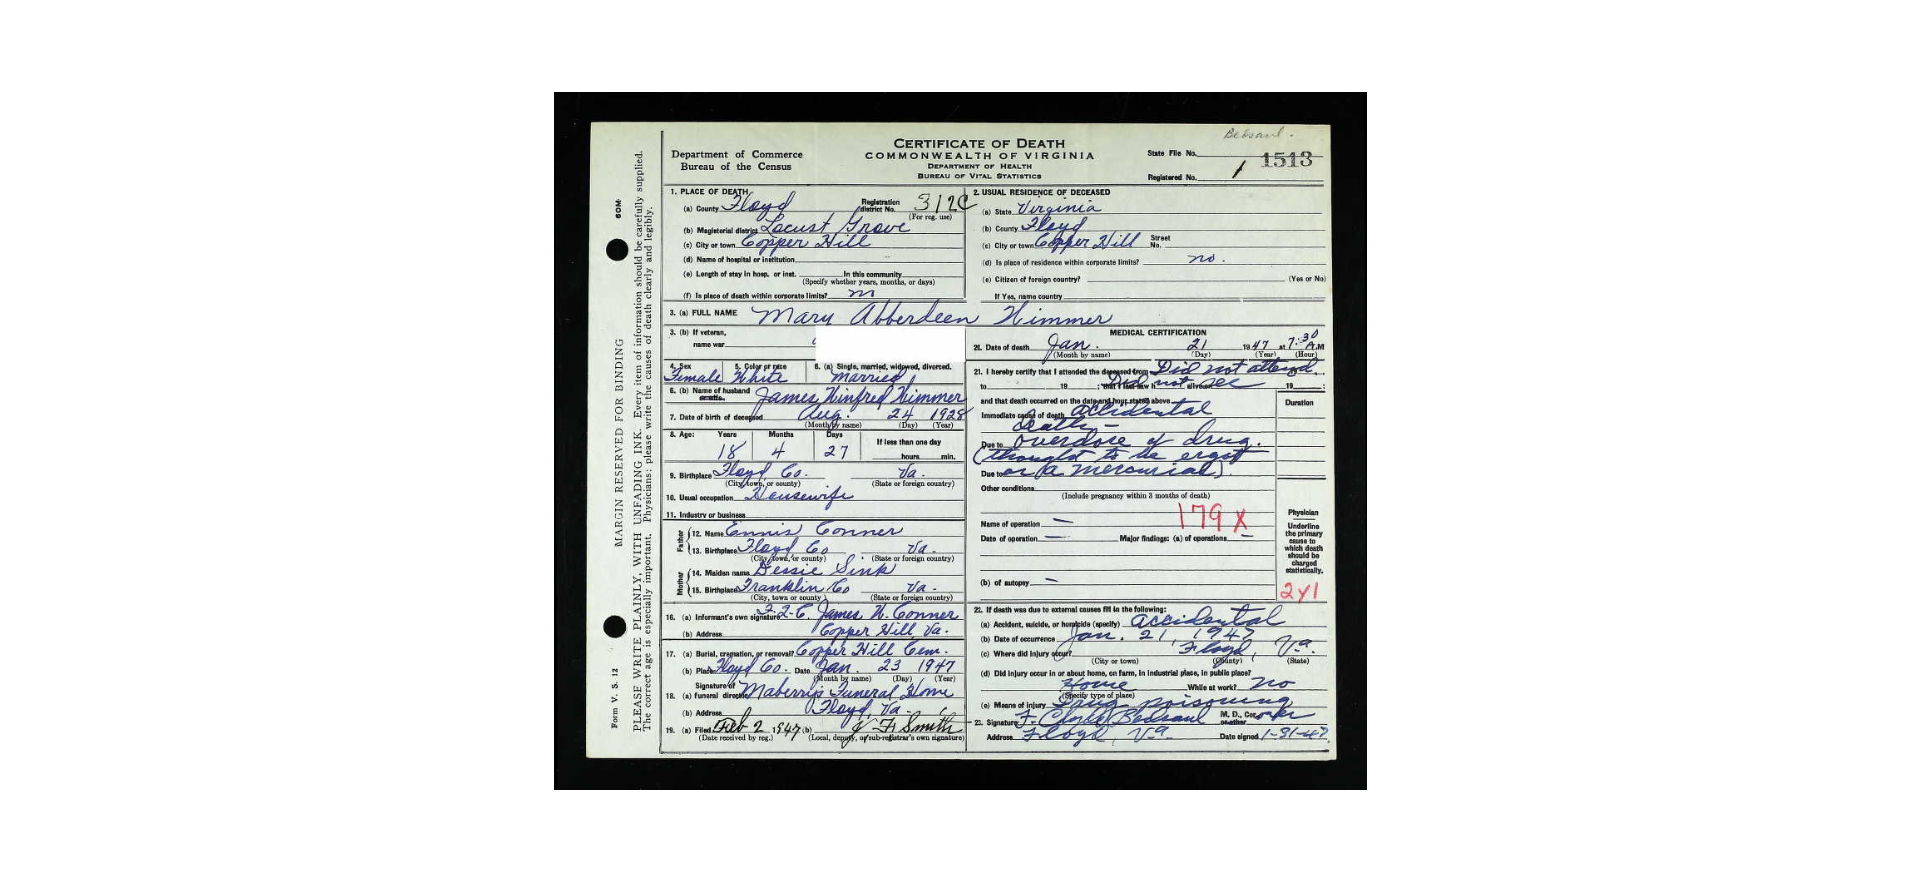 Bedsaul.
CERTIFICATE OF DEATH
COMMONWEALTH OF VIRGINIA
DEPARTMENT OF HEALTH
BUREAU OF VITAL STATISTICS
Department of Commerce
Bureau of the Census
State File No. 1513
Registered No. 1
1. PLACE OF DEATH
(a) County Floyd Registration district No. 312C
(For reg. use)
(b) Magisterial district Locust Grove
(c) City or town Copper Hill
(d) Name of hospital or institution
(e) Length of stay in hosp. or inst. In this community
(Specify whether years, months, or days)
(f) Is place of death within corporate limits? no
2. USUAL RESIDENCE OF DECEASED
(a) State Virginia
(b) County Floyd
(c) City or town Copper Hill Street No.
(d) Is place of residence within corporate limits? no.
(e) Citizen of foreign country? (Yes or No)
If Yes, name country
3. (a) FULL NAME Mary Abberdeen Wimmer
3. (b) If veteran,
name war
4. Sex 5. Color or race 6. (a) Single, married, widowed, divorced.
Female White married
6. (b) Name of husband James Winfred Wimmer
7. Date of birth of deceased Aug. 24 1928
(Month by name) (Day) (Year)
8. Age: Years Months Days If less than one day
18 4 27 hours min.
9. Birthplace Floyd Co. Va.
(City, town, or county) (State or foreign country)
10. Usual occupation Housewife
11. Industry or business
Father
12. Name Ennis Conner
13. Birthplace Floyd Co Va.
(City, town, or county) (State or foreign country)
Mother
14. Maiden name Dessie Sink
15. Birthplace Franklin Co Va.
(City, town or county) (State or foreign country)
16. (a) Informant's own signature James W. Conner
(b) Address Copper Hill, Va.
17. (a) Burial, cremation, or removal? Copper Hill Cem.
(b) Place Floyd Co. Date Jan. 23 1947
(Month by name) (Day) (Year)
18. (a) Signature of funeral director Maberry's Funeral Home
(b) Address Floyd, Va.
19. (a) Filed Feb 2 1947 (b) J F Smith
(Date received by reg.) (Local, deputy, or sub-registrar's own signature)
MEDICAL CERTIFICATION
20. Date of death Jan. 21 1947 at 7:30 A.M
(Month by name) (Day) (Year) (Hour)
21. I hereby certify that I attended the deceased from Did not attend.
to 19 ; that I last saw h alive on Did not see 19 ;
and that death occurred on the date and hour stated above.
Immediate cause of death accidental
death —
Due to overdose of drug.
(thought to be ergot
Due to or a mercurial)
Other conditions
(Include pregnancy within 3 months of death)
Duration
179 X
Name of operation —
Date of operation — Major findings: (a) of operations —
(b) of autopsy —
Physician
Underline
the primary
cause to
which death
should be
charged
statistically.
2y1
22. If death was due to external causes fill in the following:
(a) Accident, suicide, or homicide (specify) accidental
(b) Date of occurrence Jan. 21, 1947
(c) Where did injury occur? Floyd, Va.
(City or town) (County) (State)
(d) Did injury occur in or about home, on farm, in industrial place, in public place?
Home While at work? No
(Specify type of place)
(e) Means of injury Drug poisoning
23. Signature F. Clyde Bedsaul M. D., Coroner
Address Floyd, Va. Date signed 1-31-47
MARGIN RESERVED FOR BINDING
PLEASE WRITE PLAINLY, WITH UNFADING INK. Every item of information should be carefully supplied.
The correct age is especially important. Physicians: please write the causes of death clearly and legibly.
Form V. S. 12
60M